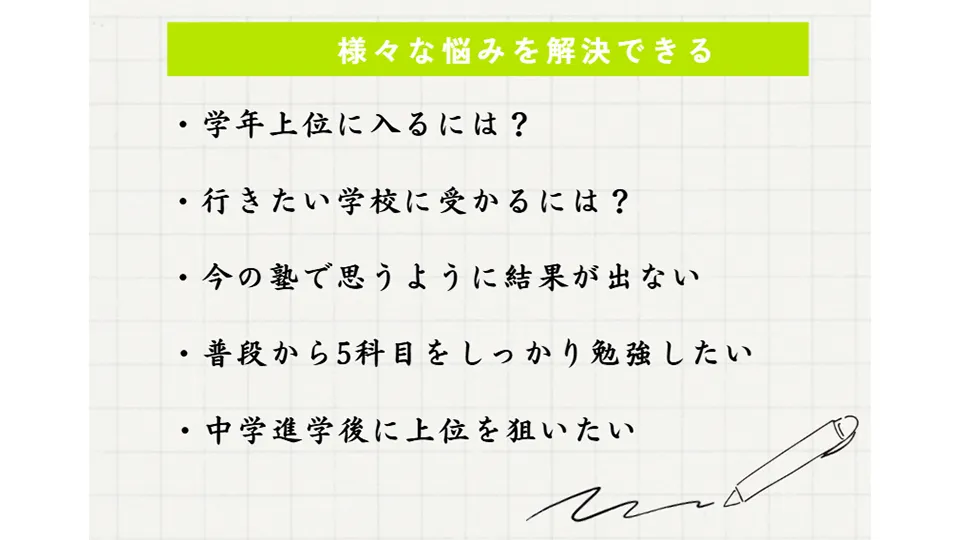 様々な悩みを解決できる
・学年上位に入るには？
・行きたい学校に受かるには？
・今の塾で思うように結果が出ない
・普段から5科目をしっかり勉強したい
・中学進学後に上位を狙いたい